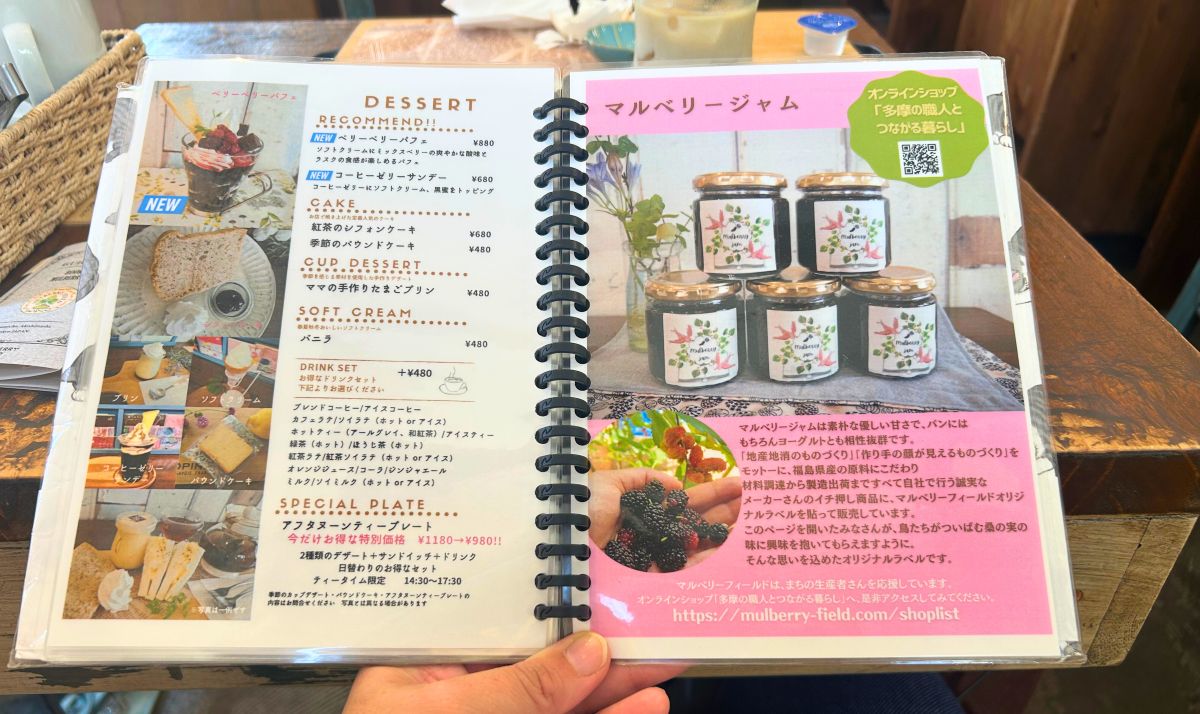 ベリーベリーパフェ
NEW
シフォンケーキ
プリン
ソフトクリーム
コーヒーゼリー
サンデー
パウンドケーキ
※写真は一例です
DESSERT
RECOMMEND!!
NEW ベリーベリーパフェ ¥880
ソフトクリームにミックスベリーの爽やかな酸味と
ラスクの食感が楽しめるパフェ
NEW コーヒーゼリーサンデー ¥680
コーヒーゼリーにソフトクリーム、黒蜜をトッピング
CAKE
お店で焼き上げた定番人気のケーキ
紅茶のシフォンケーキ ¥680
季節のパウンドケーキ ¥480
CUP DESSERT
季節を感じる素材を使用した手作りデザート
ママの手作りたまごプリン ¥480
SOFT CREAM
春夏秋冬おいしいソフトクリーム
バニラ ¥480
DRINK SET +¥480
お得なドリンクセット
下記よりお選びください
ブレンドコーヒー/アイスコーヒー
カフェラテ/ソイラテ（ホット or アイス）
ホットティー（アールグレイ、和紅茶）/アイスティー
緑茶（ホット）/ほうじ茶（ホット）
紅茶ラテ/紅茶ソイラテ（ホット or アイス）
オレンジジュース/コーラ/ジンジャエール
ミルク/ソイミルク（ホット or アイス）
SPECIAL PLATE
アフタヌーンティープレート
今だけお得な特別価格 ¥1180→¥980!!
2種類のデザート+サンドイッチ+ドリンク
日替わりのお得なセット
ティータイム限定 14:30~17:30
季節のカップデザート・パウンドケーキ・アフタヌーンティープレートの
内容はお問合せください 写真とは異なる場合があります
マルベリージャム
オンラインショップ
「多摩の職人と
つながる暮らし」
Mulberry
jam
Mulberry
jam
Mulberry
jam
Mulberry
jam
Mulberry
jam
マルベリージャムは素朴な優しい甘さで、パンには
もちろんヨーグルトとも相性抜群です。
「地産地消のものづくり」「作り手の顔が見えるものづくり」を
モットーに、福島県産の原料にこだわり
材料調達から製造出荷まですべて自社で行う誠実な
メーカーさんのイチ押し商品に、マルベリーフィールドオリジ
ナルラベルを貼って販売しています。
このページを開いたみなさんが、鳥たちがついばむ桑の実の
味に興味を抱いてもらえますように。
そんな思いを込めたオリジナルラベルです。
マルベリーフィールドは、まちの生産者さんを応援しています。
オンラインショップ「多摩の職人とつながる暮らし」へ、是非アクセスしてみてください。
https://mulberry-field.com/shoplist